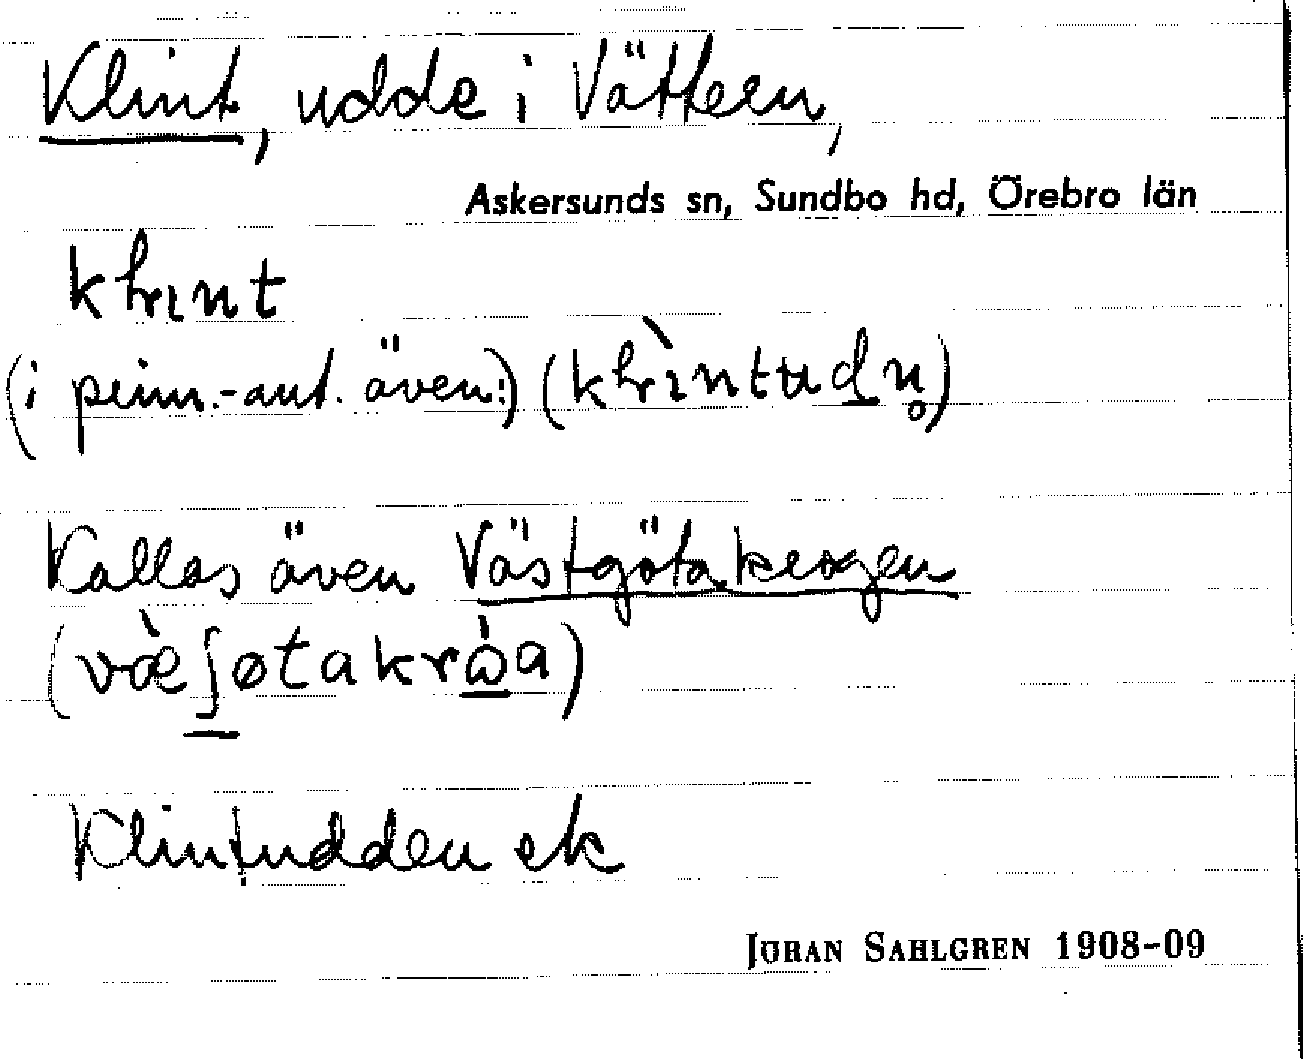 Klint, udde i Vättern,
Askersunds sn, Sundbo hd, Örebro län
klınt
(i prim.-ant. även:) (klìntudn̥)
Kallas även Västgötakrogen
(væ̀ʃøtakrὼa)
Klintudden ek
JOHAN SAHLGREN 1908-09